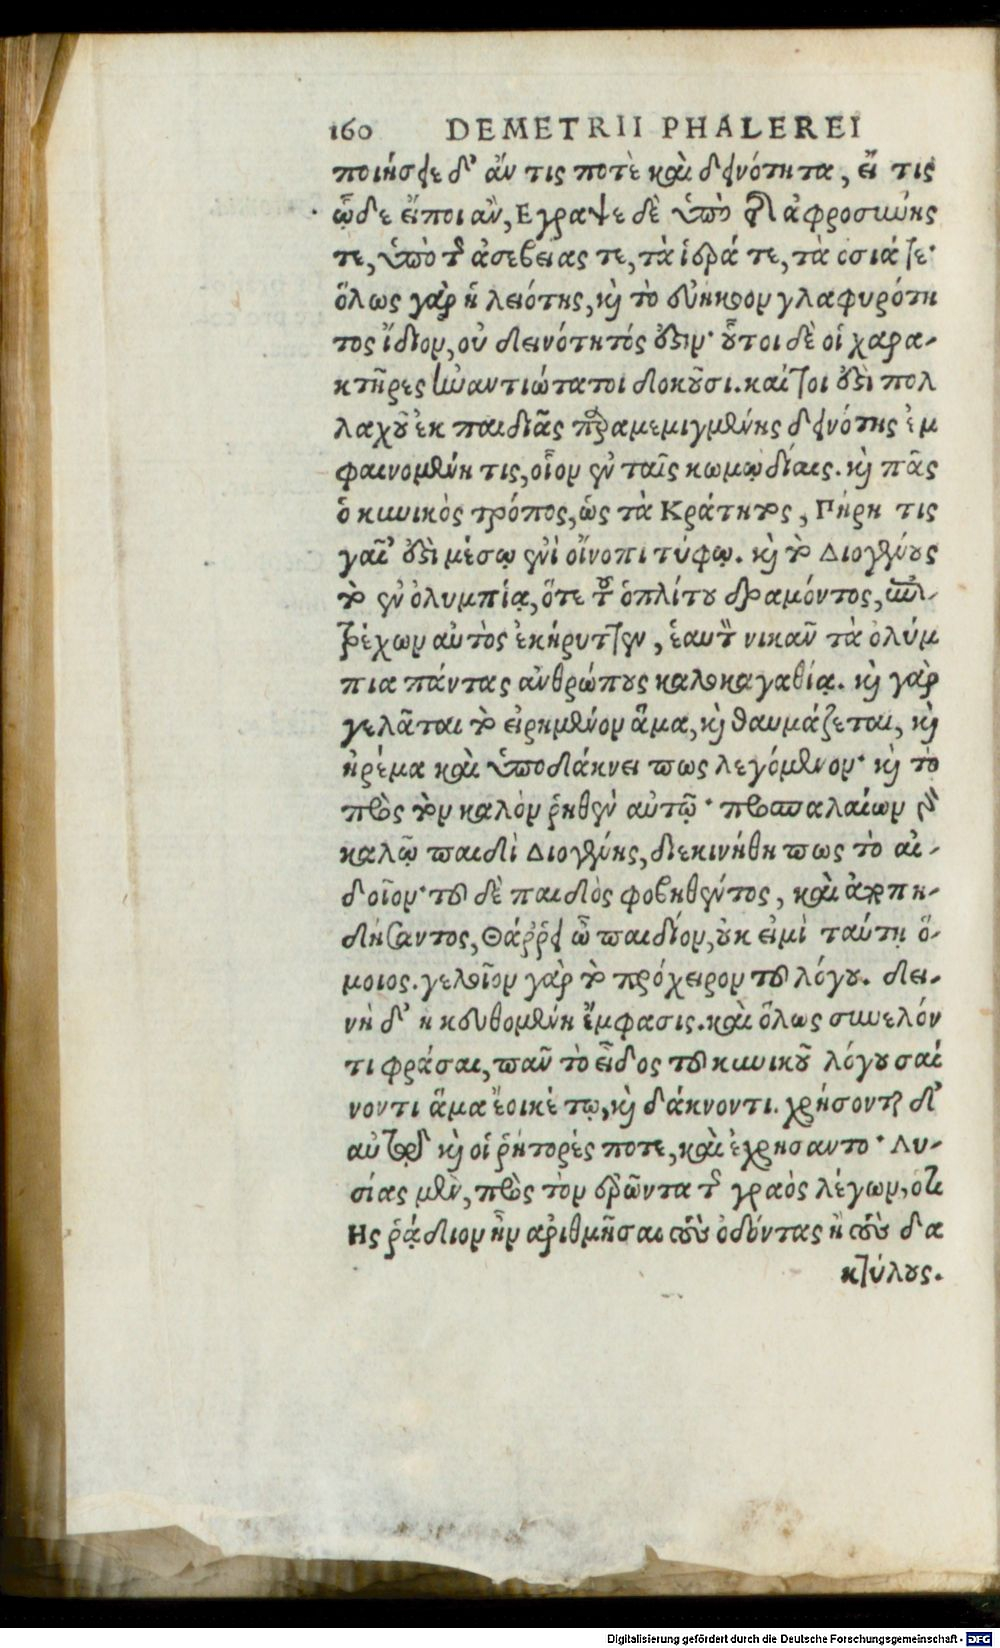 160 DEMETRII PHALEREI
ποιήσειε δ' ἄν τις ποτὲ καὶ δεινότητα, εἴ τις
ὧδε εἴποι ἂν, Εγραψε δὲ ὑπὸ τῆς ἀφροσύνης
τε, ὑπὸ τῆς ἀσεβείας τε, τὰ ἱερά τε, τὰ ὅσιά τε·
ὅλως γὰρ ἡ λειότης, καὶ τὸ εὐήκοον γλαφυρότη
τος ἴδιον, οὐ δεινότητός ἐστιν· οὗτοι δὲ οἱ χαρα-
κτῆρες ἐναντιώτατοι δοκοῦσι. καίτοι ἐστὶ πολ
λαχοῦ ἐκ παιδιᾶς παραμεμιγμένης δεινότης ἐμ
φαινομένη τις, οἷον ἐν ταῖς κωμῳδίαις. καὶ πᾶς
ὁ κυνικὸς τρόπος, ὡς τὰ Κράτητος, Πήρη τις
γαῖ' ἐστὶ μέσῳ ἐνὶ οἴνοπι τύφῳ. καὶ τὸ Διογένους
τὸ ἐν ὀλυμπίᾳ, ὅτε τοῦ ὁπλίτου δραμόντος, ἐπι-
τρέχων αὐτὸς ἐκήρυττεν, ἑαυτὸν νικᾶν τὰ ὀλύμ
πια πάντας ἀνθρώπους καλοκαγαθίᾳ. καὶ γὰρ
γελᾶται τὸ εἰρημένον ἅμα, καὶ θαυμάζεται, καὶ
ἠρέμα καὶ ὑποδάκνει πως λεγόμενον· καὶ τὸ
πρὸς τὸν καλὸν ῥηθὲν αὐτῷ· προσπαλαίων ἐν
καλῷ παιδὶ Διογένης, διεκινήθη πως τὸ αἰ-
δοῖον· τοῦ δὲ παιδὸς φοβηθέντος, καὶ ἀποπη-
δήσαντος, Θάῤῥει ὦ παιδίον, οὐκ εἰμὶ ταύτῃ ὅ-
μοιος. γελοῖον γὰρ τὸ πρόχειρον τοῦ λόγου. δει-
νὴ δ' ἡ κευθομένη ἔμφασις. καὶ ὅλως συνελόν
τι φράσαι, πᾶν τὸ εἶδος τοῦ κυνικοῦ λόγου σαί
νοντι ἅμα ἔοικέ τῳ, καὶ δάκνοντι. χρήσονται δ'
αὐτῷ καὶ οἱ ῥήτορές ποτε, καὶ ἐχρήσαντο· Λυ-
σίας μὲν, πρὸς τὸν ἐρῶντα τῆς γραὸς λέγων, ὅτι
Ης ῥᾴδιον ἦν ἀριθμῆσαι τοὺς ὀδόντας ἢ τοὺς δα
κτύλους.
Digitalisierung gefördert durch die Deutsche Forschungsgemeinschaft - DFG